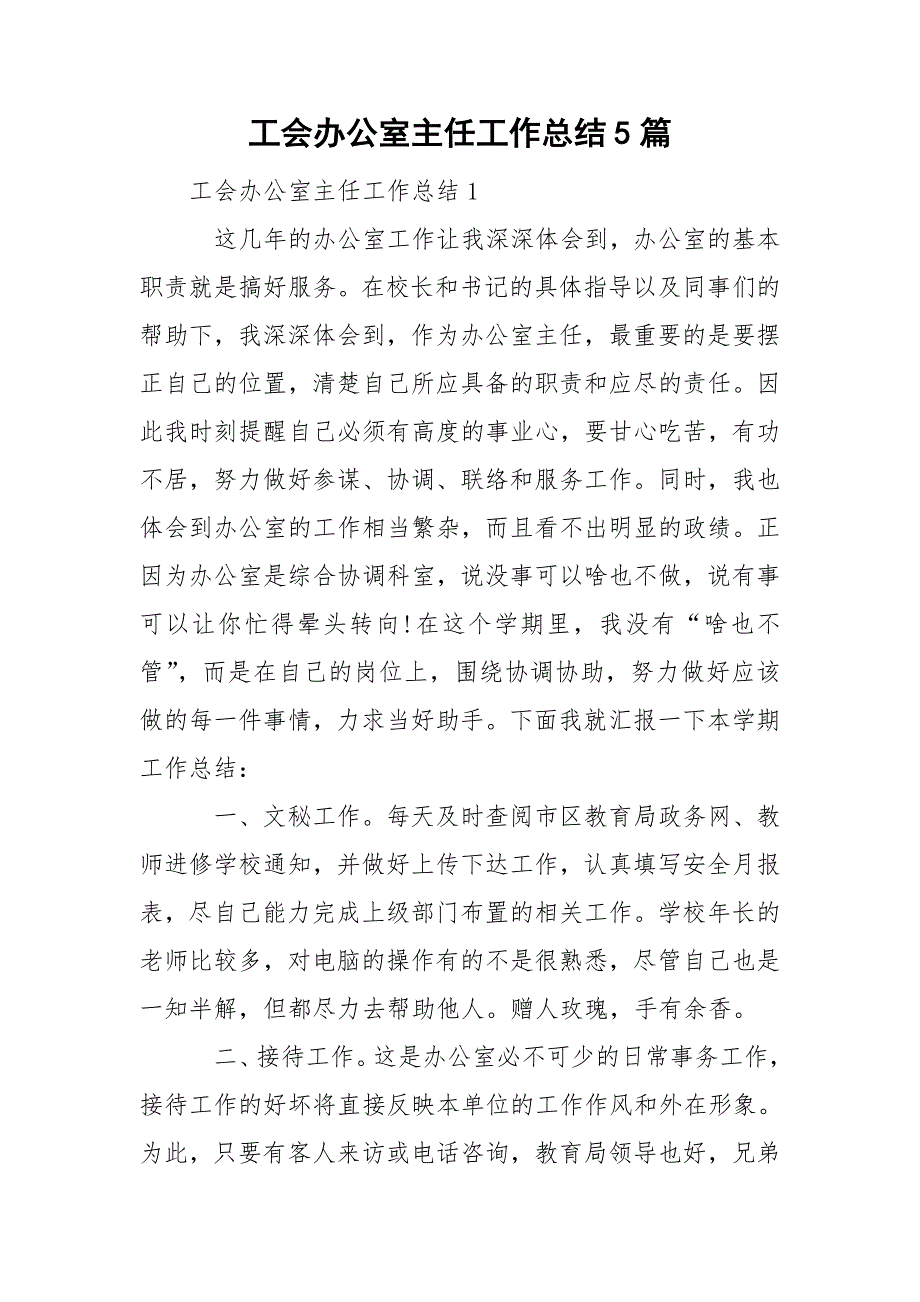 工会办公室主任工作总结 5 篇
工会办公室主任工作总结 1
这几年的办公室工作让我深深体会到，办公室的基本
职责就是搞好服务。在校长和书记的具体指导以及同事们的
帮助下，我深深体会到，作为办公室主任，最重要的是要摆
正自己的位置，清楚自己所应具备的职责和应尽的责任。因
此我时刻提醒自己必须有高度的事业心，要甘心吃苦，有功
不居，努力做好参谋、协调、联络和服务工作。同时，我也
体会到办公室的工作相当繁杂，而且看不出明显的政绩。正
因为办公室是综合协调科室，说没事可以啥也不做，说有事
可以让你忙得晕头转向!在这个学期里，我没有“啥也不
管”，而是在自己的岗位上，围绕协调协助，努力做好应该
做的每一件事情，力求当好助手。下面我就汇报一下本学期
工作总结：
一、文秘工作。每天及时查阅市区教育局政务网、教
师进修学校通知，并做好上传下达工作，认真填写安全月报
表，尽自己能力完成上级部门布置的相关工作。学校年长的
老师比较多，对电脑的操作有的不是很熟悉，尽管自己也是
一知半解，但都尽力去帮助他人。赠人玫瑰，手有余香。
二、接待工作。这是办公室必不可少的日常事务工作，
接待工作的好坏将直接反映本单位的工作作风和外在形象。
为此，只要有客人来访或电话咨询，教育局领导也好，兄弟